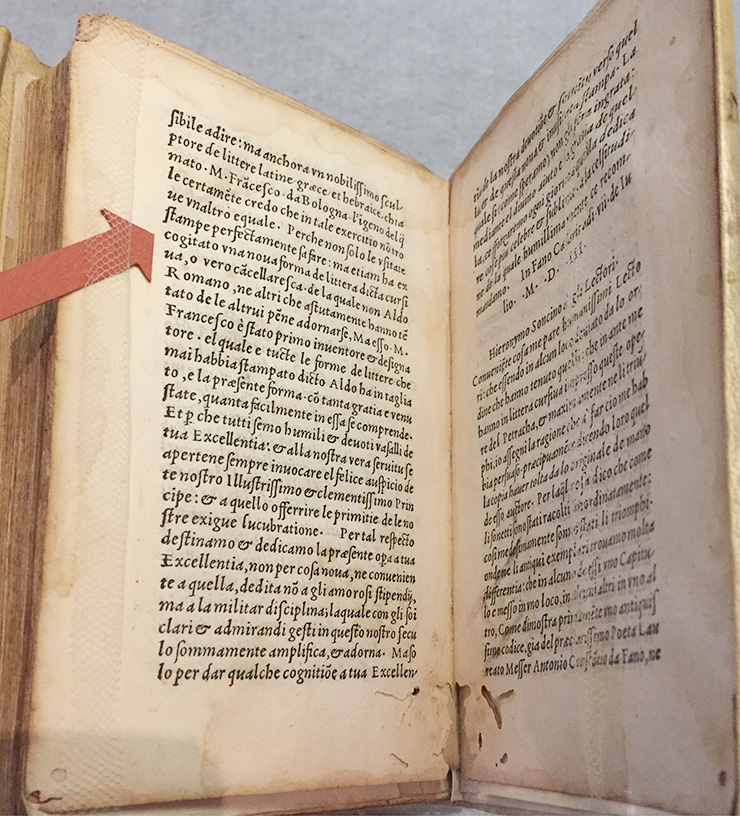 sibile adire: ma anchora vn nobilissimo scul-
ptore de littere latine græce et hebraice, chia
mato · M · Frãcesco da Bologna · l'igeno del q̃
le certamẽte credo che in tale exercitio nõ tro
ue vnaltro equale · Perche non solo le vsitate
stampe perfectamente sa fare: ma etiam ha ex
cogitato vna noua forma de littera dicta cursi
ua, o vero cãcellaresca · de la quale non Aldo
Romano, ne altri che astutamente hanno tẽ
tato de le altrui pẽne adornarse, Ma esso · M ·
Francesco è stato primo inuentore & designa
tore · el quale e tucte le forme de littere che
mai habbia stampato dicto Aldo ha in taglia
to, e la præsente forma · cõ tanta gratia e venu
state, quanta facilmente in essa se comprende ·
Et p che tutti semo humili & deuoti vasalli de
tua Excellentia: & alla nostra vera seruitu se
apertene sempre inuocare el felice auspicio de
te nostro Illustrissimo & clementissimo Prin
cipe: & a quello offerrire le primitie de le no
stre exigue lucubratione · Per tal respecto
destinamo & dedicamo la præsente opa a tua
Excellentia, non per cosa noua, ne conuenien
te a quella, dedita nõ a gli amorosi stipendij,
ma a la militar disciplina; laquale con gli soi
clari & admirandi gesti in questo nostro secu
lo sommamente amplifica, & adorna · Ma so
lo per dar qualche cognitiõe a tua Excellen-
tia de la nostra & verso quel
la: & de questa noua stampa · La
quale se non gli sera ingrata:
mediante el diuino aiuto
ha ce sforzaremo ogni giorno dedica
re cose piu celebre &
ne · de la quale humilmente ce recom-
mandamo · In Fano Cæsaris · adi · vii · de Iu
lio · M · D · III ·
Hieronymo Soncino a gli Lectori ·
Conueniẽte cosa me pare humanissimi Lecto
ri: che essendo in alcun loco deuiato da lo or
dine che hanno tenuto quelli: che inante me
hanno in littera cursiua impresso queste ope
re del Petrarcha, & maximamente ne li triũ
phi, io assegni la ragione che a far cio me hab
bia persuaso · præcipuamẽte dicendo loro quel
la copia hauer tolta da lo originale de mano
de esso auctore · Per laql cosa dico che come
li sonetti sono stati racolti inordinatamente:
cosi medesimamente sono stati li triomphi ·
onde ne li antiqui exemplari trouamo molta
differentia: che in alcuno de essi vno Capitu-
lo e messo in vno loco, in alcuni altri in vno al
tro, Come dimostra primamẽte vno antiquis
simo codice, gia del præclarissimo Poeta Lau
reato Messer Antonio Constãtio da Fano, ne